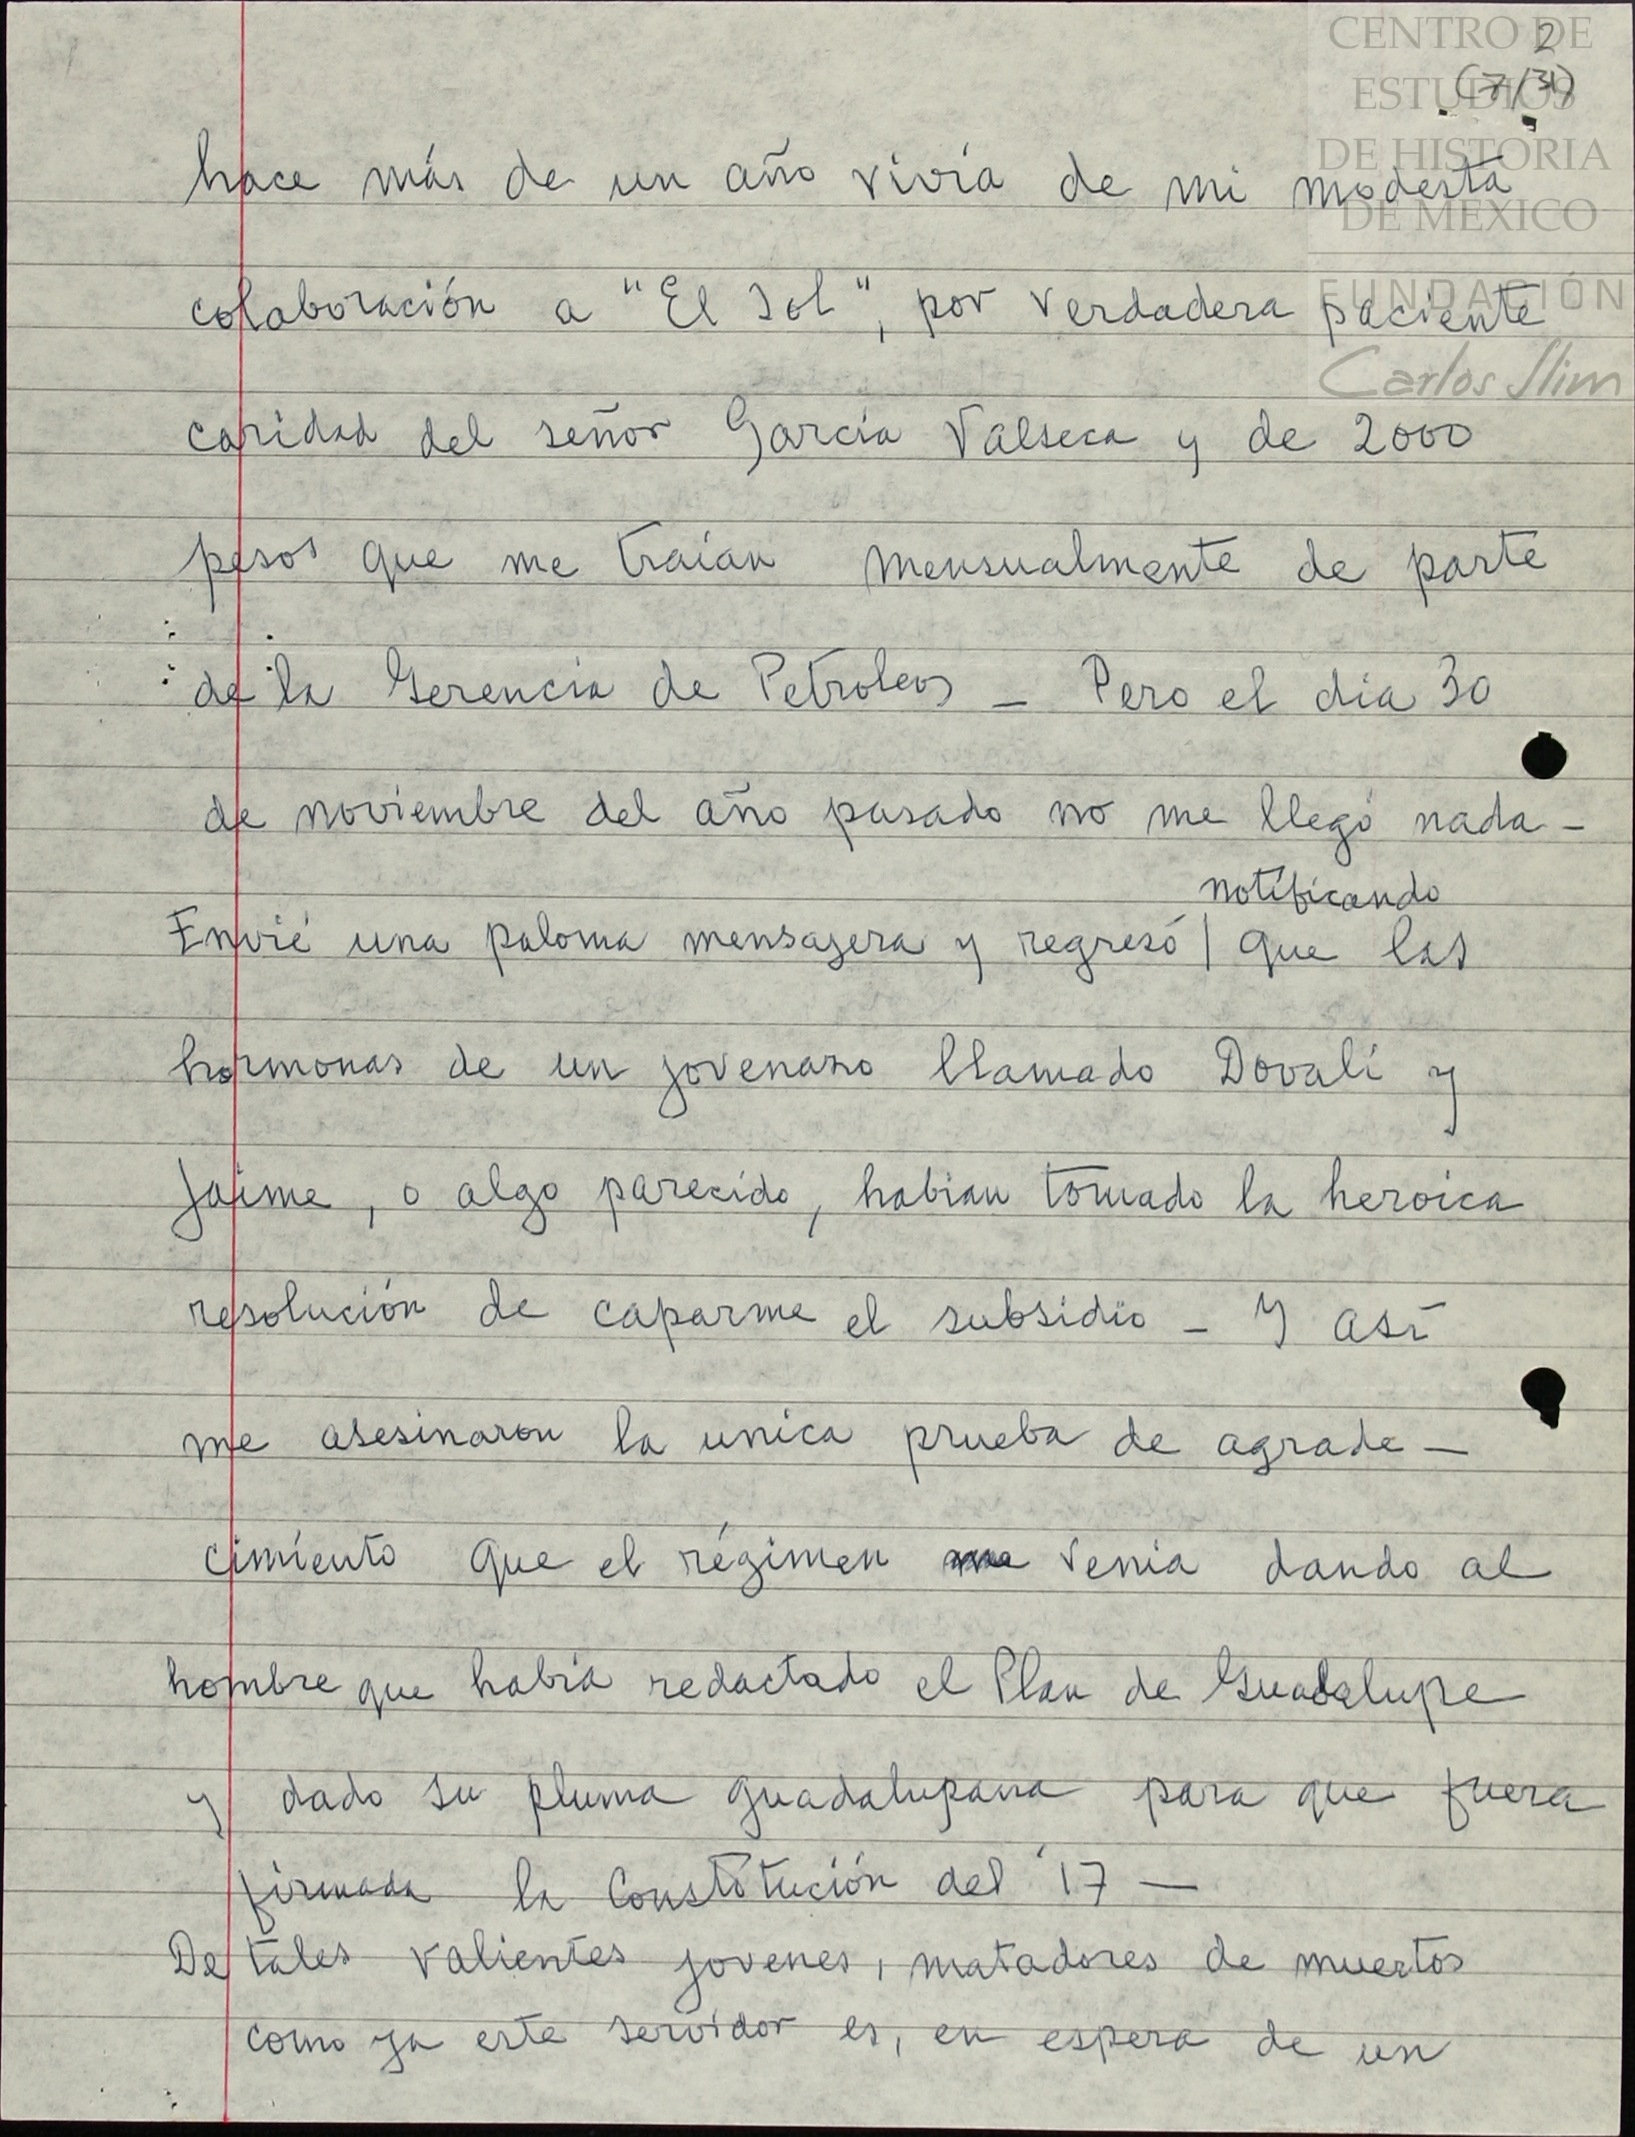 2
(7/31)
CENTRO DE
ESTUDIOS
DE HISTORIA
DE MEXICO
FUNDACIÓN
Carlos Slim
hace más de un año vivía de mi modesta
colaboración a "El Sol", por verdadera paciente
caridad del señor García Valseca y de 2000
pesos que me traian mensualmente de parte
de la Gerencia de Petroleos _ Pero el dia 30
de noviembre del año pasado no me llegó nada _
notificando
Envié una paloma mensajera y regresó | que las
hormonas de un jovenazo llamado Dovalí y
Jaime, o algo parecido, habian tomado la heroica
resolución de caparme el subsidio _ Y así
me asesinaron la unica prueba de agrade-
cimiento que el régimen me venia dando al
hombre que había redactado el Plan de Guadalupe
y dado su pluma guadalupana para que fuera
firmada la Constitución del '17 —
De tales valientes jovenes, matadores de muertos
como ya este servidor es, en espera de un